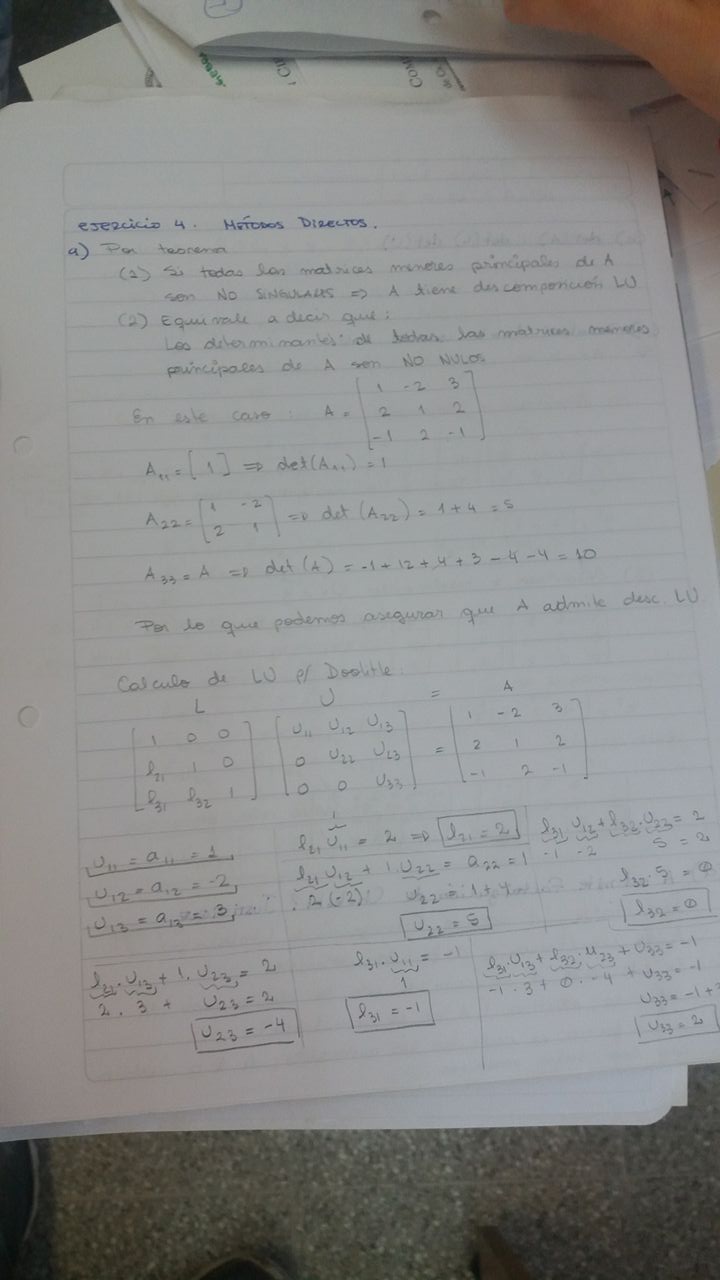 Ejercicio 4. Métodos Directos.
a) Por teorema
(1) Si todas las matrices menores principales de A
son NO SINGULARES => A tiene descomposición LU
(2) Equivale a decir que:
Los determinantes de todas las matrices menores
principales de A son NO NULOS
En este caso: A = [1 -2 3
2 1 2
-1 2 -1]
A₁₁ = [1] => det(A₁₁) = 1
A₂₂ = [1 -2
2 1] => det(A₂₂) = 1 + 4 = 5
A₃₃ = A => det(A) = -1 + 12 + 4 + 3 - 4 - 4 = 10
Por lo que podemos asegurar que A admite desc. LU
Calculo de LU p/ Doolitle:
L U = A
[1 0 0 [U₁₁ U₁₂ U₁₃ [1 -2 3
l₂₁ 1 0 0 U₂₂ U₂₃ = 2 1 2
l₃₁ l₃₂ 1] 0 0 U₃₃] -1 2 -1]
U₁₁ = a₁₁ = 1
U₁₂ = a₁₂ = -2
U₁₃ = a₁₃ = 3
1
l₂₁ U₁₁ = 2 => l₂₁ = 2
l₂₁ U₁₂ + 1. U₂₂ = a₂₂ = 1
2 (-2)
U₂₂ = 1 + 4
U₂₂ = 5
l₃₁. U₁₂ + l₃₂. U₂₂ = 2
-1 -2 5 = 2
l₃₂. 5 = 0
l₃₂ = 0
l₂₁. U₁₃ + 1. U₂₃ = 2
2. 3 + U₂₃ = 2
U₂₃ = -4
l₃₁. U₁₁ = -1
1
l₃₁ = -1
l₃₁. U₁₃ + l₃₂. U₂₃ + U₃₃ = -1
-1. 3 + 0. -4 + U₃₃ = -1
U₃₃ = -1 +
U₃₃ = 2